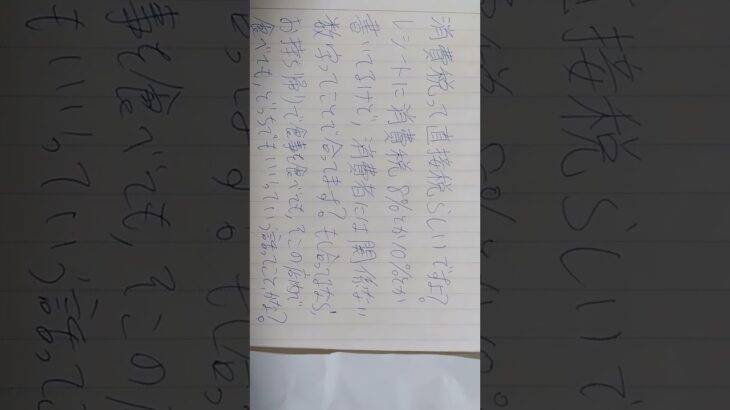 消費税って直接税らしいですよ。
レシートに消費税8%とか10%とか
書いてるけど、消費者には関係ない
数字ってことで合ってますよ?もし合ってるなら、
お持ち帰りで食事を食べても、そこの店内で
食べても、どっちでもいいっていう話ってことかな?